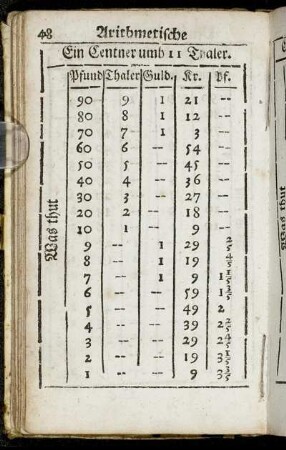 48 Arithmetische
Ein Centner umb 11 Thaler.
Pfund Thaler Guld. Kr. Pf.
Was thut
90 9 1 21 --
80 8 1 12 --
70 7 1 3 --
60 6 -- 54 --
50 5 -- 45 --
40 4 -- 36 --
30 3 -- 27 --
20 2 -- 18 --
10 1 -- 9 --
9 -- 1 29 2/5
8 -- 1 19 4/5
7 -- 1 9 1 1/5
6 -- -- 59 1 3/5
5 -- -- 49 2
4 -- -- 39 2 2/5
3 -- -- 29 2 4/5
2 -- -- 19 3 1/5
1 -- -- 9 3 3/5